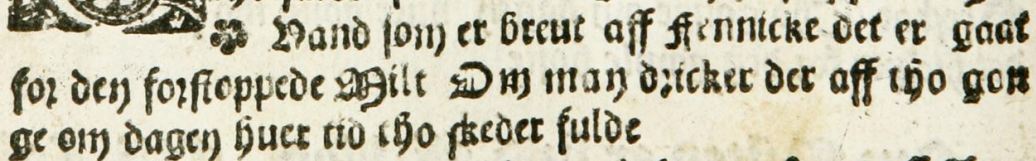 Vand som er brent aff Fennicke det er gaat
for den forstoppede Milt Om man dricker der aff tho gon
ge om dagen huer tid tho skeder fulde